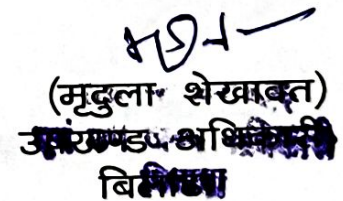 (मृदुला शेखावत)
उपखण्ड अधिकारी